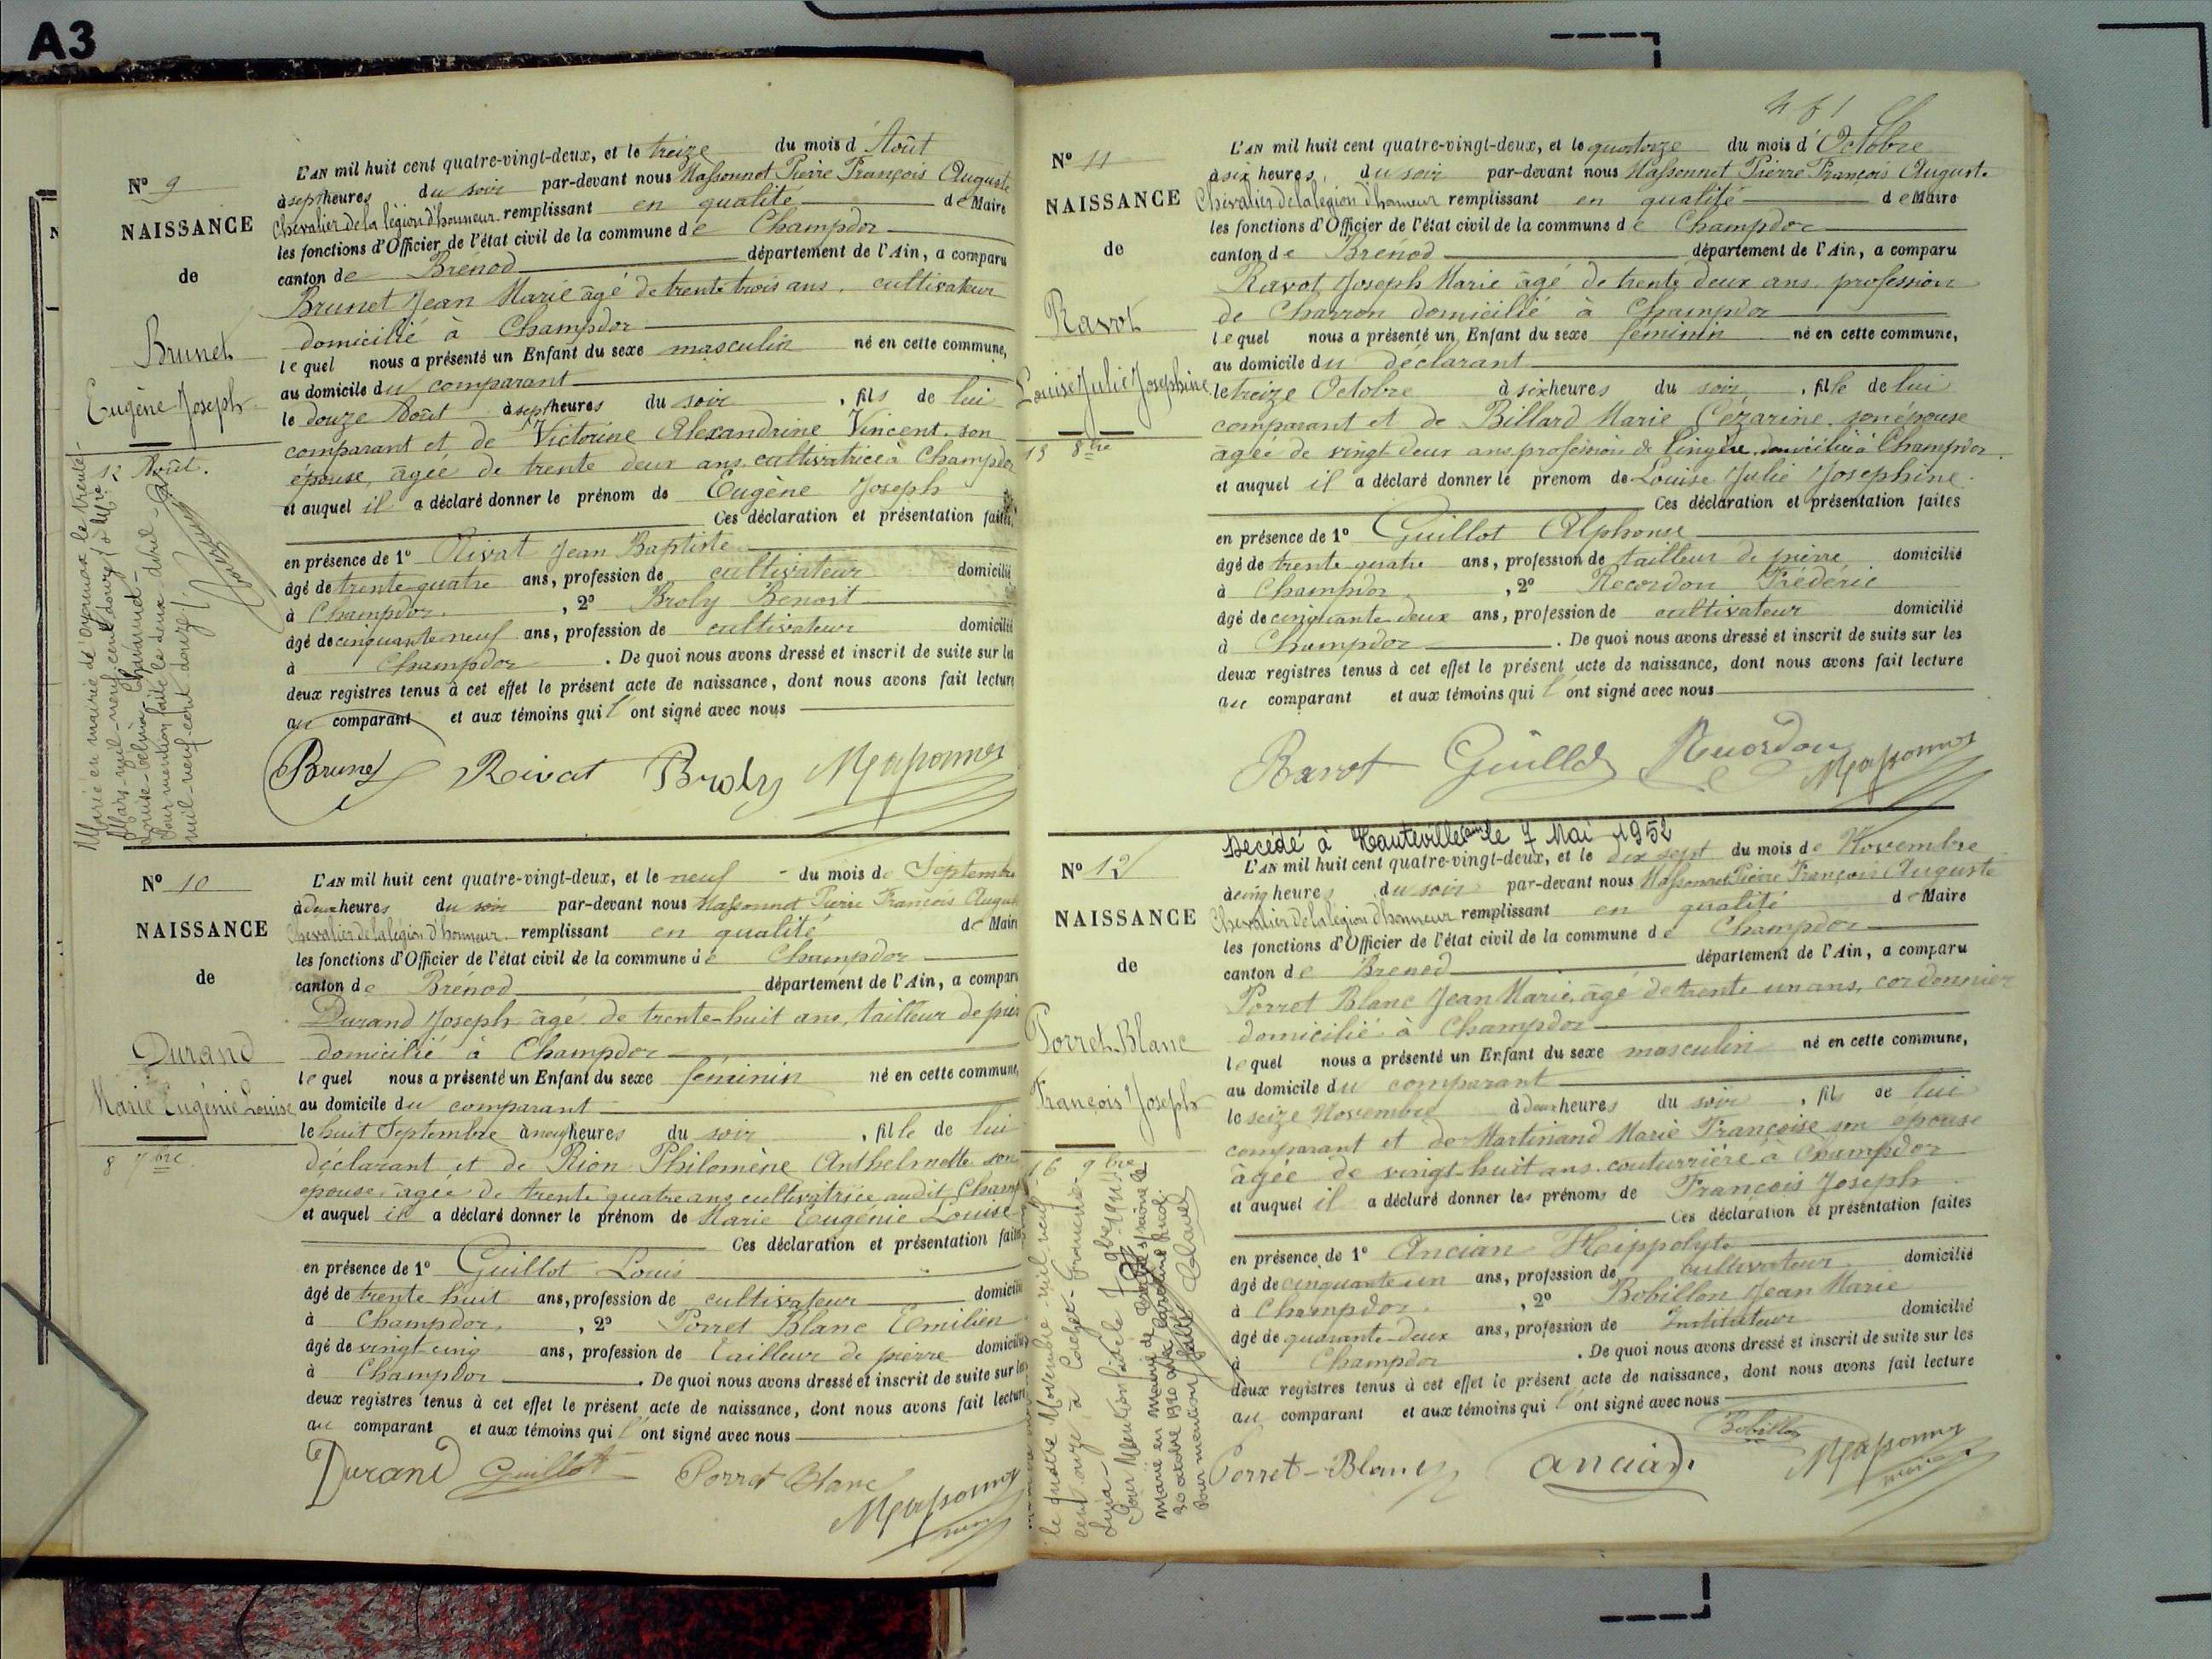 A3
N° 9
NAISSANCE
de
Brunet
Eugène Joseph
12 Août.
Marié en mairie de oyonnax le trente
Mars mil-neuf-cent douze, à
Louise-
Pour mention faite le deux Avril
mil-neuf-cent douze.
L'AN mil huit cent quatre-vingt-deux, et le treize du mois d'Août
à sept heures du soir par-devant nous Massonnet Pierre François Auguste
Chevalier de la légion d'honneur remplissant en qualité de Maire
les fonctions d'Officier de l'état civil de la commune de Champdor
canton de Brénod département de l'Ain, a comparu
Brunet Jean Marie âgé de trente trois ans, cultivateur
domicilié à Champdor
lequel nous a présenté un Enfant du sexe masculin né en cette commune,
au domicile du comparant
le douze Août à sept heures du soir, fils de lui
comparant et de Victorine Alexandrine Vincent, son
épouse, âgée de trente deux ans, cultivatrice à Champdor
et auquel il a déclaré donner le prénom de Eugène Joseph
Ces déclaration et présentation faites
en présence de 1° Rivat Jean Baptiste
âgé de trente-quatre ans, profession de cultivateur domicilié
à Champdor, 2° Broly Benoit
âgé de cinquante neuf ans, profession de cultivateur domicilié
à Champdor. De quoi nous avons dressé et inscrit de suite sur les
deux registres tenus à cet effet le présent acte de naissance, dont nous avons fait lecture
au comparant et aux témoins qui l'ont signé avec nous
Brunet Rivat Broly Massonnet
N° 10
NAISSANCE
de
Durand
Marie Eugénie Louise
8 7bre
L'AN mil huit cent quatre-vingt-deux, et le neuf du mois de Septembre
à deux heures du soir par-devant nous Massonnet Pierre François August
Chevalier de la légion d'honneur remplissant en qualité de Mair
les fonctions d'Officier de l'état civil de la commune de Champdor
canton de Brénod département de l'Ain, a compar
Durand Joseph âgé de trente-huit ans, tailleur de pier
domicilié à Champdor
lequel nous a présenté un Enfant du sexe féminin né en cette commune,
au domicile du comparant
le huit Septembre à neuf heures du soir, fille de lui
déclarant et de Rion Philomène Anthelmette son
épouse, âgée de trente quatre ans, cultivatrice audit Champ
et auquel il a déclaré donner le prénom de Marie Eugénie Louise
Ces déclaration et présentation faites
en présence de 1° Guillot Louis
âgé de trente huit ans, profession de cultivateur domicilié
à Champdor, 2° Porret Blanc Emilien
âgé de vingt-cinq ans, profession de tailleur de pierre domicilié
à Champdor. De quoi nous avons dressé et inscrit de suite sur les
deux registres tenus à cet effet le présent acte de naissance, dont nous avons fait lecture
au comparant et aux témoins qui l'ont signé avec nous
Durand Guillot Porret Blanc
Massonnet
maire
N° 11
NAISSANCE
de
Ravot
Louise Julie Josephine
13 8bre
L'AN mil huit cent quatre-vingt-deux, et le quatorze du mois d'Octobre
à six heures, du soir par-devant nous Massonnet Pierre François Auguste
Chevalier de la légion d'honneur remplissant en qualité de Maire
les fonctions d'Officier de l'état civil de la commune de Champdor
canton de Brénod département de l'Ain, a comparu
Ravot Joseph Marie âgé de trente deux ans, profession
de Charron domicilié à Champdor
lequel nous a présenté un Enfant du sexe féminin né en cette commune,
au domicile du déclarant
le treize Octobre à six heures du soir, fille de lui
comparant et de Billard Marie Cézarine, son épouse
âgée de vingt deux ans, profession de lingère, domiciliée à Champdor
et auquel il a déclaré donner le prénom de Louise Julie Josephine
Ces déclaration et présentation faites
en présence de 1° Guillot Alphonse
âgé de trente quatre ans, profession de tailleur de pierre domicilié
à Champdor, 2° Recordon Frédéric
âgé de cinquante deux ans, profession de cultivateur domicilié
à Champdor. De quoi nous avons dressé et inscrit de suite sur les
deux registres tenus à cet effet le présent acte de naissance, dont nous avons fait lecture
au comparant et aux témoins qui l'ont signé avec nous
Ravot Guillot Recordon Massonnet
Décédé à Hauteville le 7 Mai 1952
N° 12
NAISSANCE
de
Porret-Blanc
François Joseph
16 9bre
le quatre Novembre mil neuf
cent onze, à
Pour Mention fidèle 9bre 1911
Marié en mairie de
30 octobre 1920 avec
Pour mention
L'AN mil huit cent quatre-vingt-deux, et le dix sept du mois de Novembre
à cinq heures du soir par-devant nous Massonnet Pierre François Auguste
Chevalier de la légion d'honneur remplissant en qualité de Maire
les fonctions d'Officier de l'état civil de la commune de Champdor
canton de Brénod département de l'Ain, a comparu
Porret Blanc Jean Marie, âgé de trente un ans, cordonnier
domicilié à Champdor
lequel nous a présenté un Enfant du sexe masculin né en cette commune,
au domicile du comparant
le seize Novembre à deux heures du soir, fils de lui
comparant et de Martinand Marie Françoise son épouse
âgée de vingt-huit ans, couturrière à Champdor
et auquel il a déclaré donner les prénoms de François Joseph
Ces déclaration et présentation faites
en présence de 1° Ancian Hippolyte
âgé de cinquante un ans, profession de cultivateur domicilié
à Champdor, 2° Bobillon Jean Marie
âgé de quarante-deux ans, profession de Instituteur domicilié
à Champdor. De quoi nous avons dressé et inscrit de suite sur les
deux registres tenus à cet effet le présent acte de naissance, dont nous avons fait lecture
au comparant et aux témoins qui l'ont signé avec nous
Bobillon
Porret-Blanc ancian Massonnet
maire